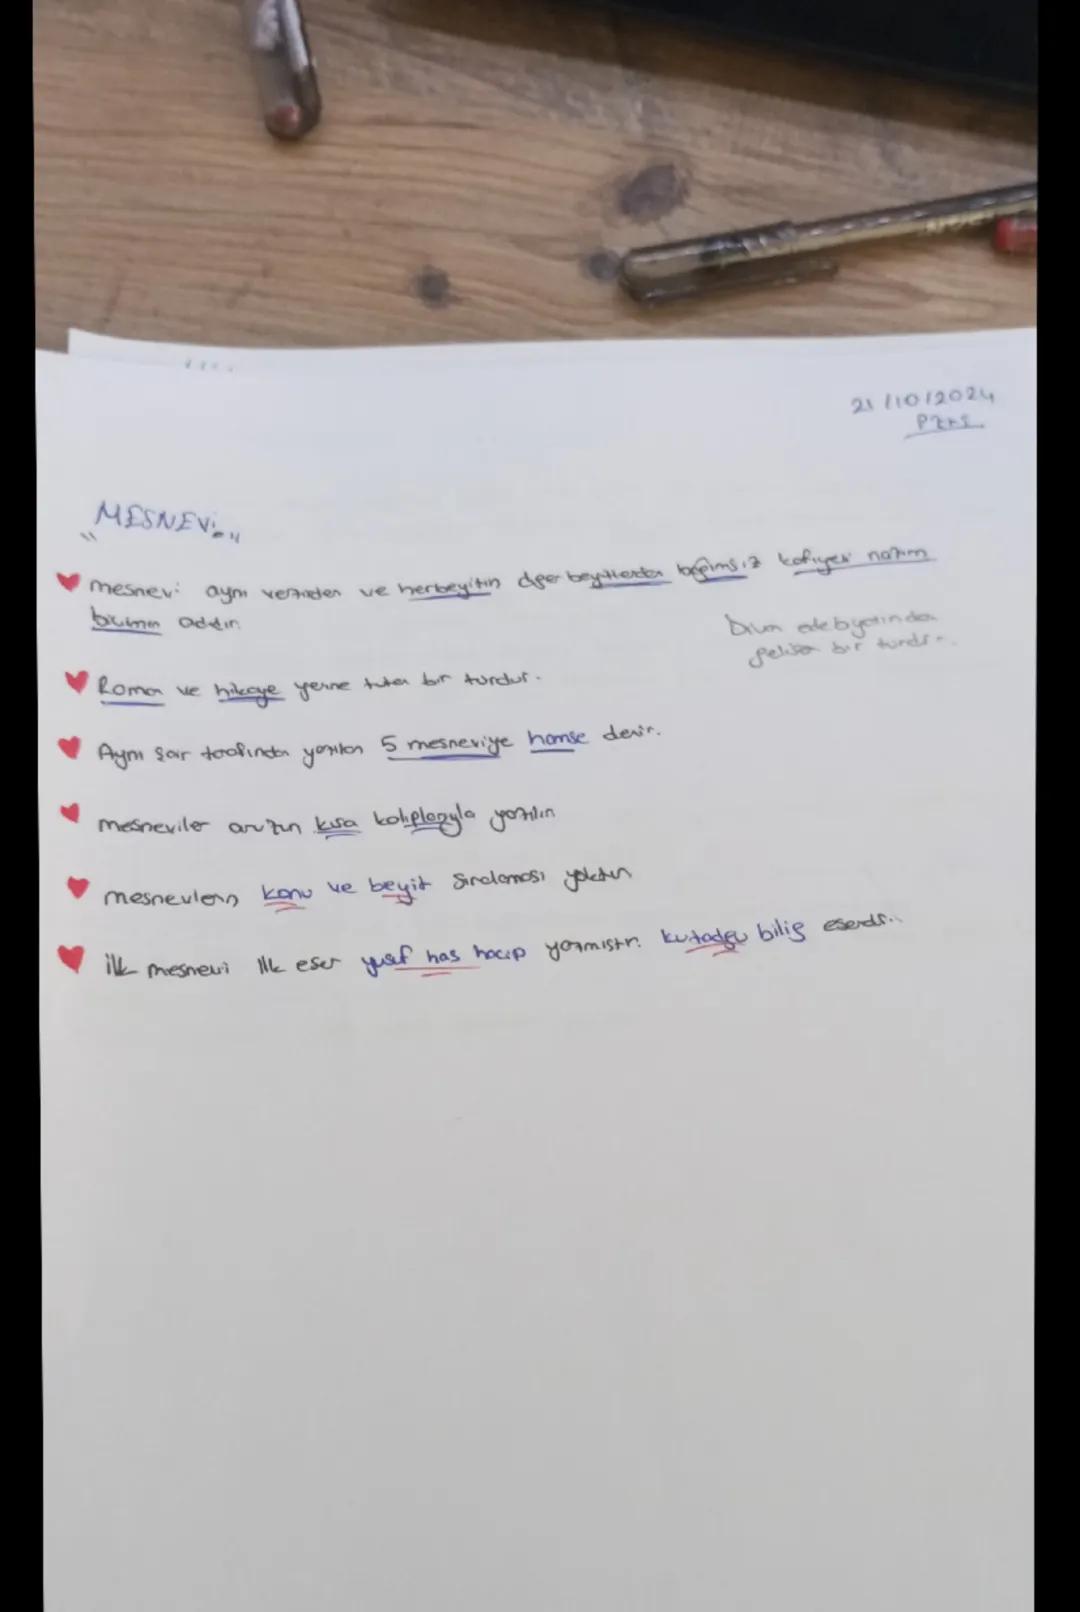 21/10/2024
PZTS
"MESNEVİ"
mesnevi aynı vezinden ve herbeyitin diğer beyitlerden bağımsız kafiyesi nazım
biçimin adıdır.
Divan edebyatından
gelişen bir türdür.
Roman ve hikaye yerine tutan bir türdür.
Aynı şair tarafından yazılan 5 mesneviye hamse denir.
mesneviler aruzun kısa kalıplarıyla yazılır
mesnevilerin konu ve beyit sıralaması yoktur
ilk mesnevi ilk eser yusuf has hacip yazmıştır. kutadgu bilig eseridir..